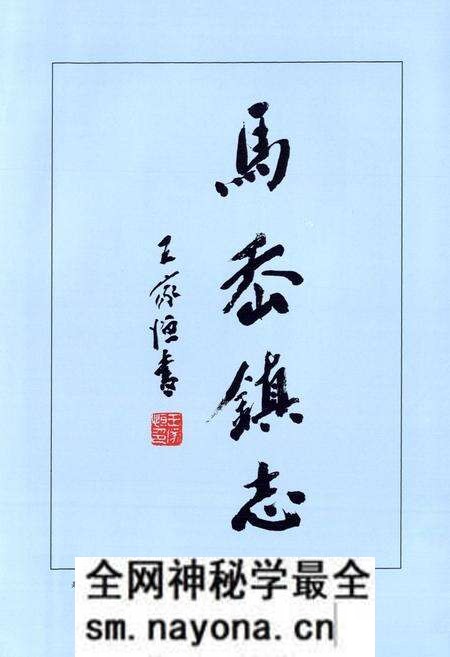 馬岙鎮志
王家恒書
全网神秘学最全
sm.nayona.cn